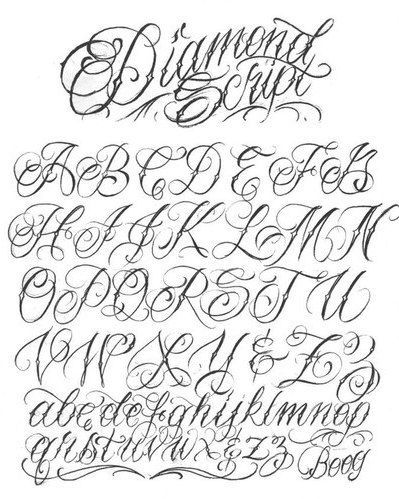 Diamond
Script
A B C D E F G
H I J K L M N
O P Q R S T U
V W X Y & Z Z
a b c d e f g h i j k l m n o p
q r s t u v w x & z z
Boog